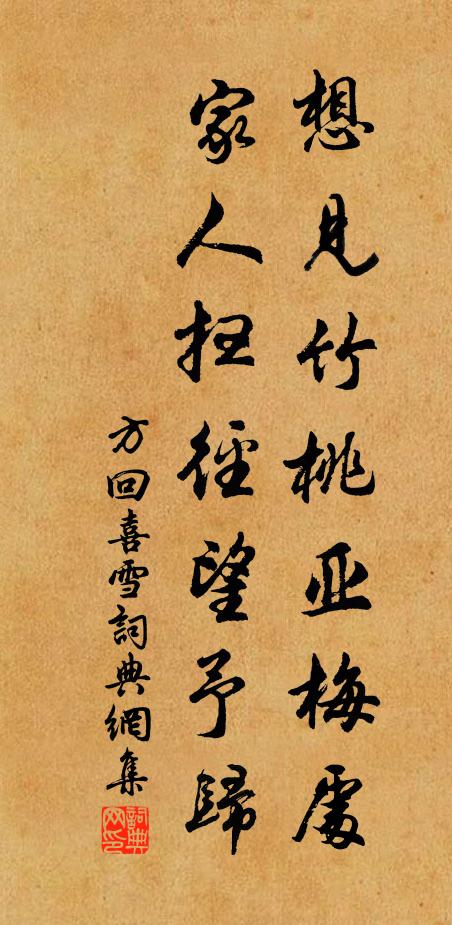 想见竹桃亚梅处
家人扫径望予歸
方回喜雪詞典網集
詞典網印